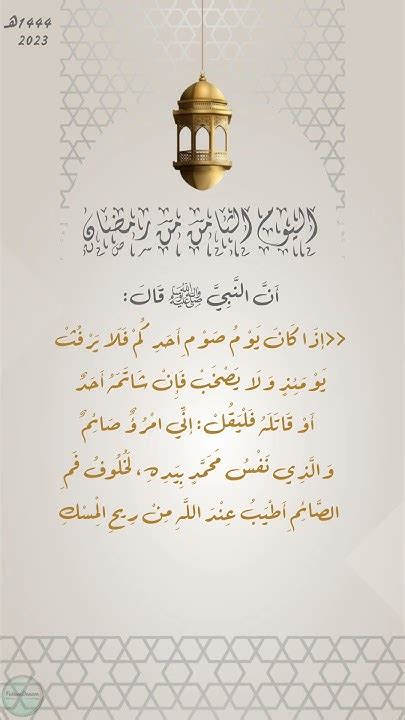 1444هـ
2023
اليوم الثامن من رمضان
أَنَّ النَّبِيَّ ﷺ قَالَ:
<<إِذَا كَانَ يَوْمُ صَوْمِ أَحَدِ كُمْ فَلَا يَرْفُثْ
يَوْمَئِذٍ وَلَا يَصْخَبْ فَإِنْ شَاتَمَهُ أَحَدٌ
أَوْ قَاتَلَهُ فَلْيَقُلْ: إِنِّي امْرُؤٌ صَائِمٌ
وَالَّذِي نَفْسُ مُحَمَّدٍ بِيَدِهِ، لَخُلُوفُ فَمِ
الصَّائِمِ أَطْيَبُ عِنْدَ اللَّهِ مِنْ رِيحِ الْمِسْكِ